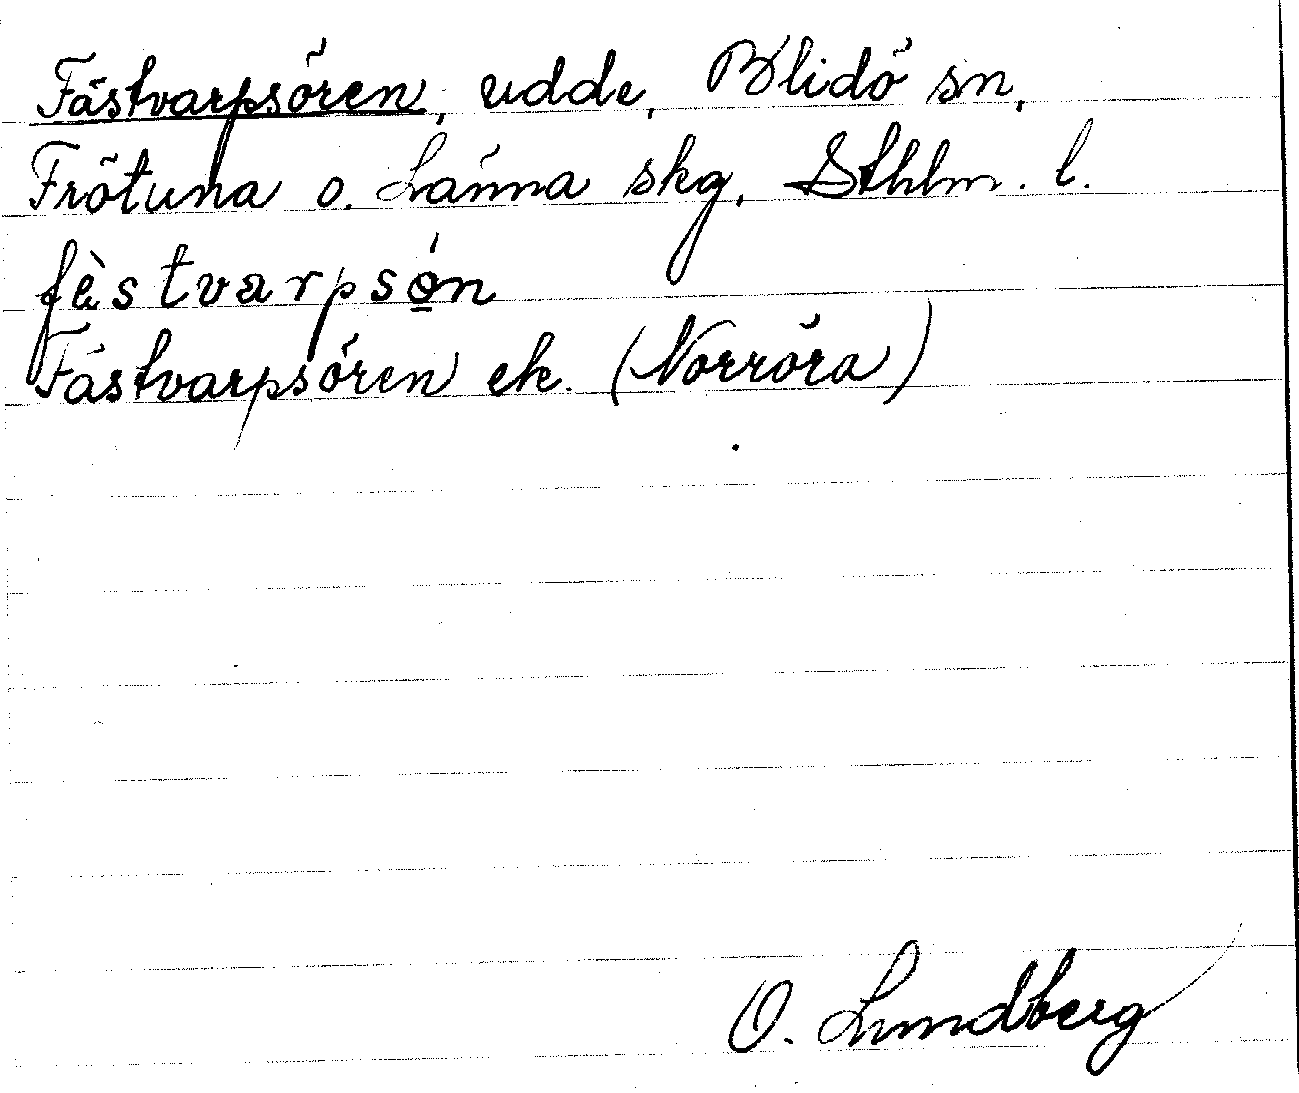 Fästvarpsören, udde, Blidö sn,
Frötuna o. Länna skg, Sthlm. l.
fèstvarpsǿn
Fästvarpsören ek. (Norröra)
O. Lundberg